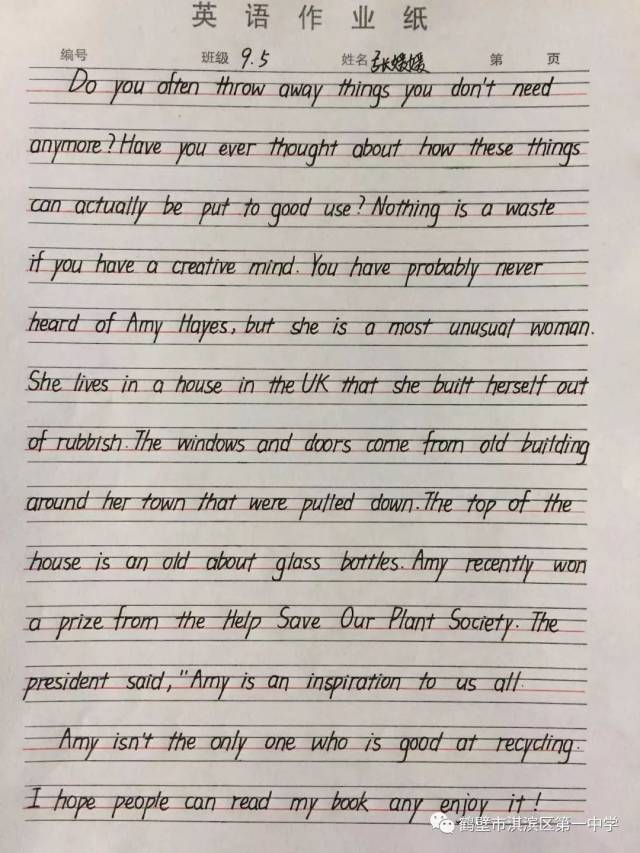 英语作业纸
编号 班级 9.5 姓名 张媛媛 第 页
Do you often throw away things you don't need
anymore? Have you ever thought about how these things
can actually be put to good use? Nothing is a waste
if you have a creative mind. You have probably never
heard of Amy Hayes, but she is a most unusual woman.
She lives in a house in the UK that she built herself out
of rubbish. The windows and doors come from old building
around her town that were pulled down. The top of the
house is an old about glass bottles. Amy recently won
a prize from the Help Save Our Plant Society. The
president said, "Amy is an inspiration to us all.
Amy isn't the only one who is good at recycling.
I hope people can read my book any enjoy it!
鹤壁市淇滨区第一中学